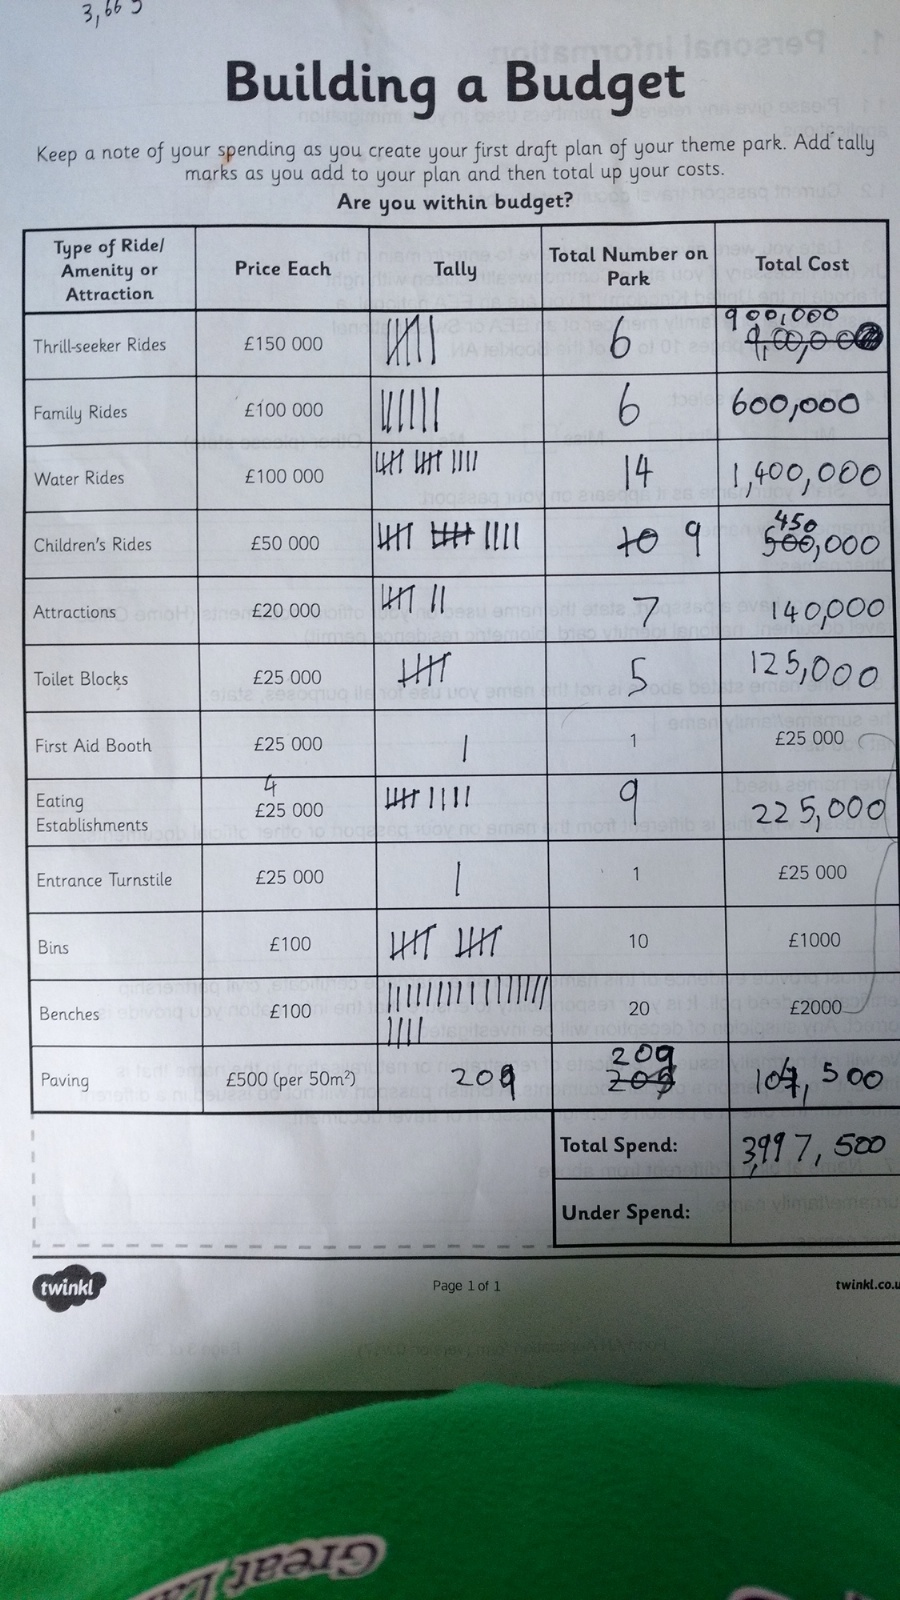 3,665
Building a Budget
Keep a note of your spending as you create your first draft plan of your theme park. Add tally
marks as you add to your plan and then total up your costs.
Are you within budget?
Type of Ride/ Amenity or Attraction Price Each Tally Total Number on Park Total Cost
Thrill-seeker Rides £150 000 6 900,000
Family Rides £100 000 6 600,000
Water Rides £100 000 14 1,400,000
Children's Rides £50 000 10 9 450 500,000
Attractions £20 000 7 140,000
Toilet Blocks £25 000 5 125,000
First Aid Booth £25 000 1 £25 000
Eating Establishments 4 £25 000 9 225,000
Entrance Turnstile £25 000 1 £25 000
Bins £100 10 £1000
Benches £100 20 £2000
Paving £500 (per 50m²) 209 209 209 104,500
Total Spend: 3,997,500
Under Spend:
twinkl Page 1 of 1 twinkl.co.u
Great